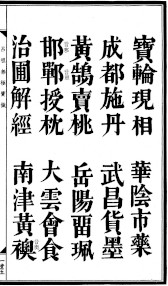 寶輪現相　華陰市藥
成都施丹　武昌貨墨
黃鵠賣桃　岳陽畱珮
邯鄲授枕　大雲會食
治圃解經　南津黃